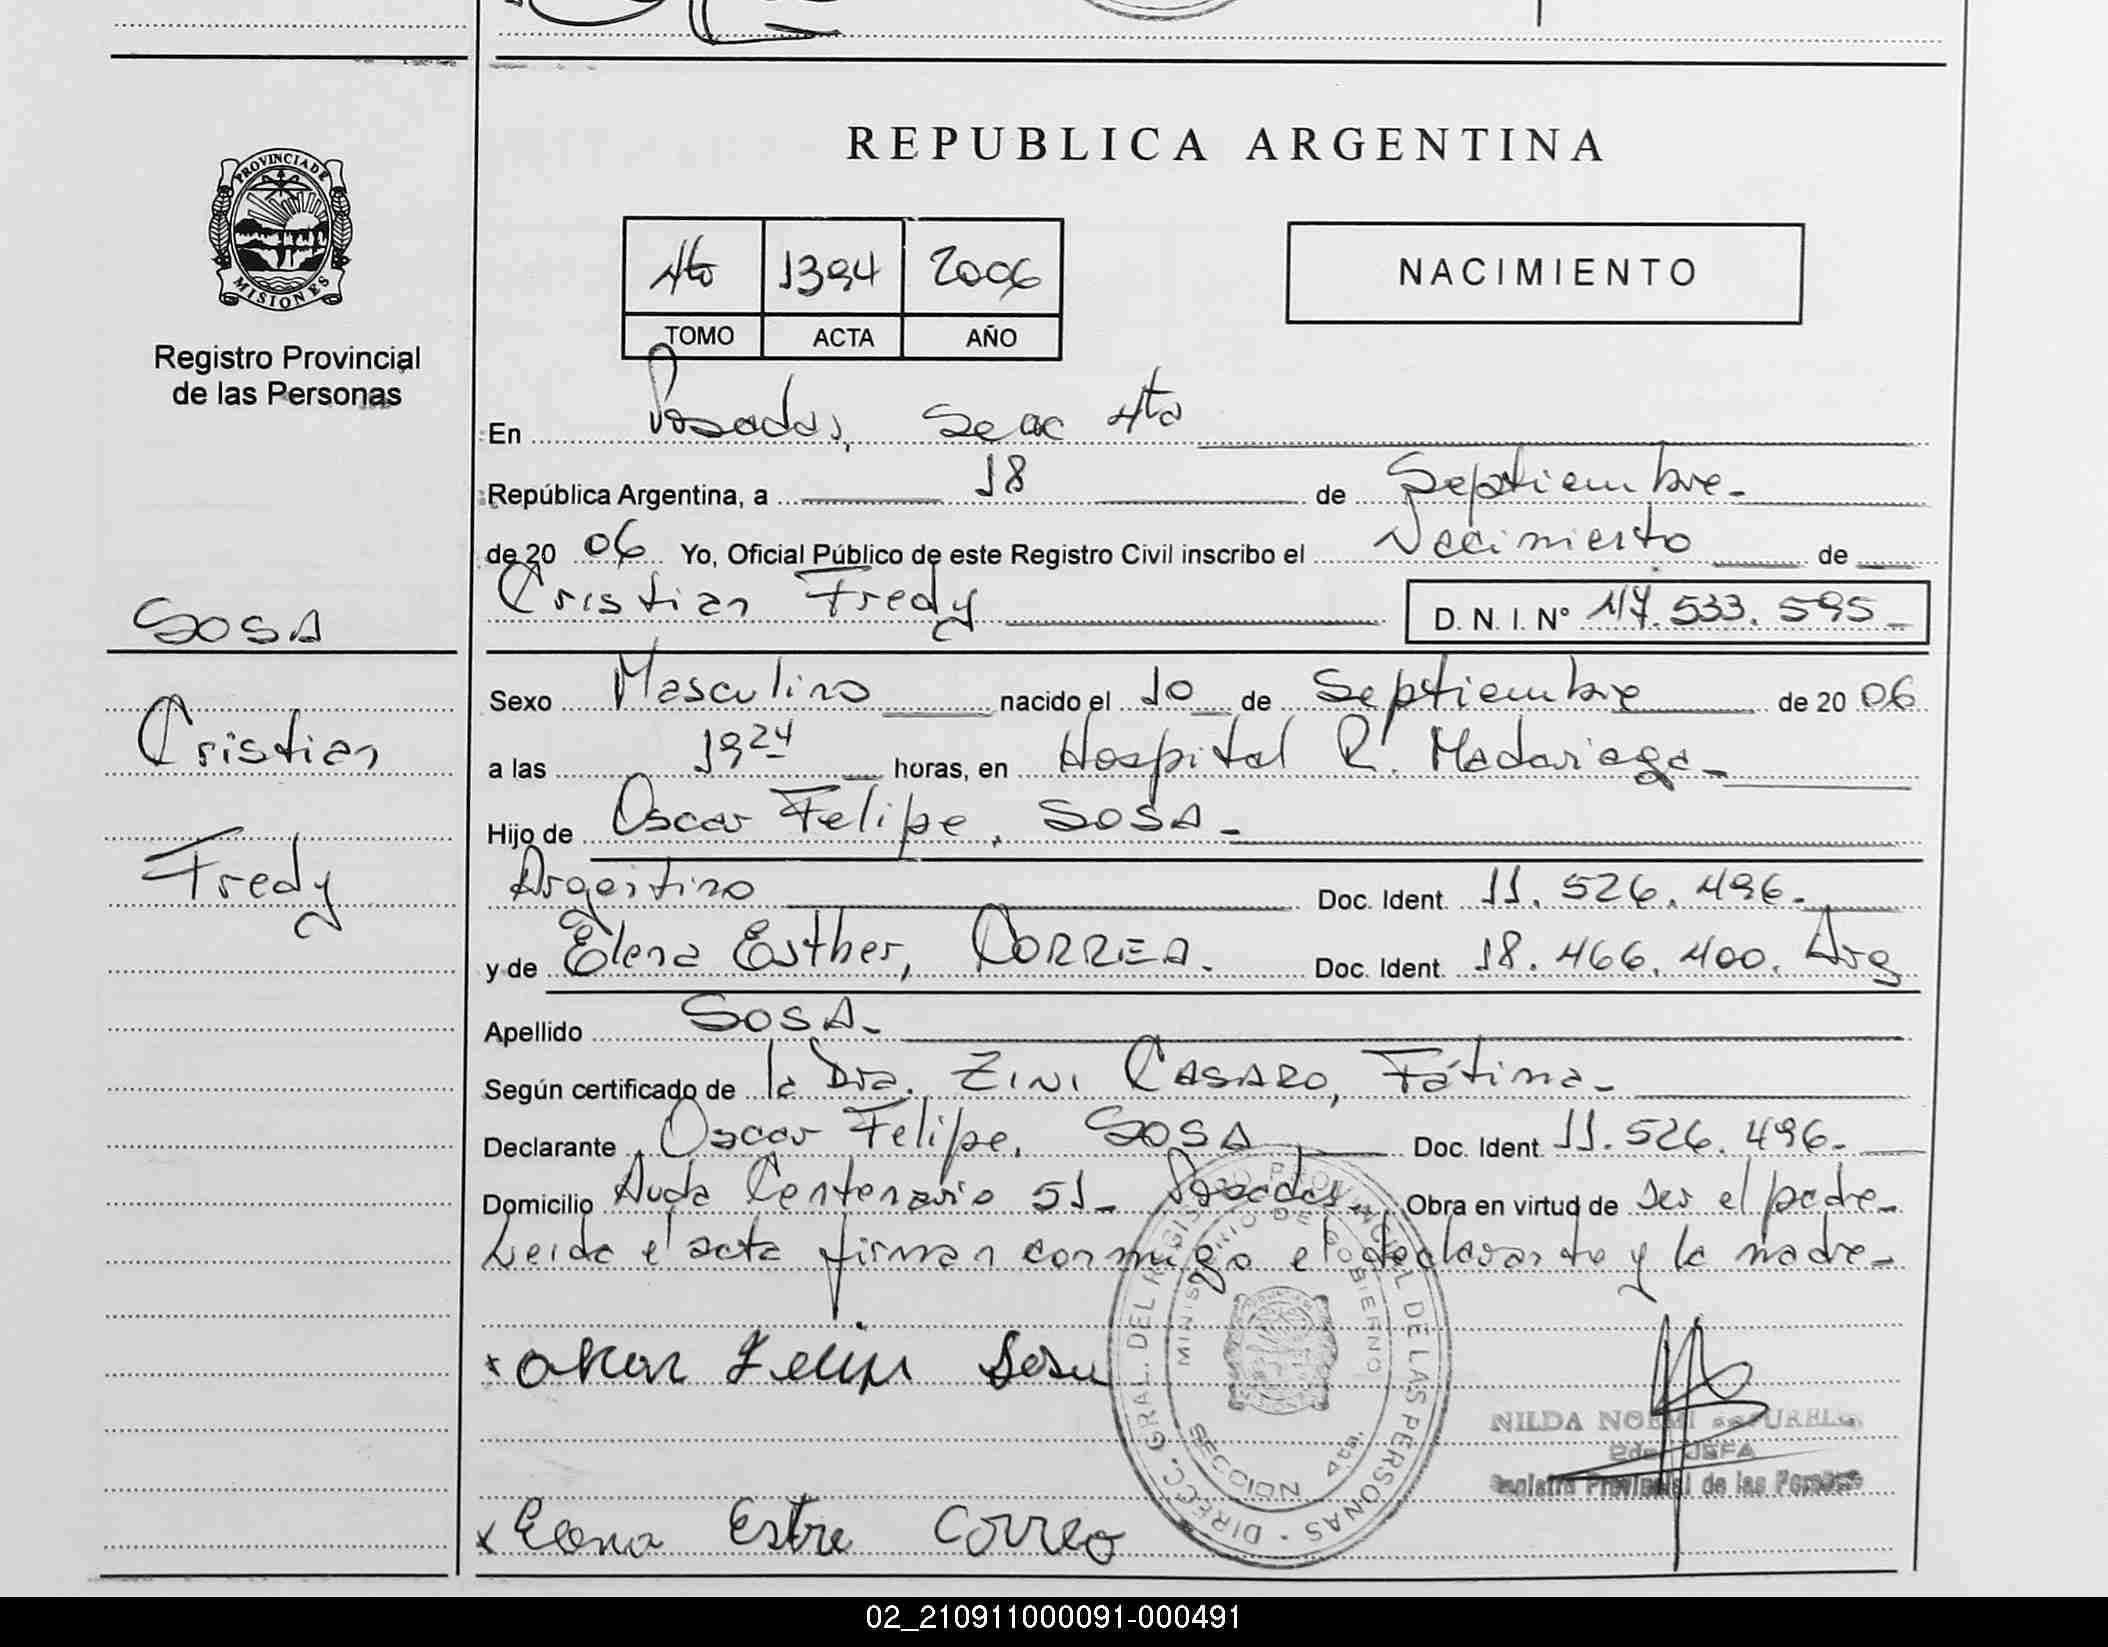 REPUBLICA ARGENTINA
PROVINCIA DE MISIONES
Registro Provincial
de las Personas
4to 1394 2006
TOMO ACTA AÑO
NACIMIENTO
En Posadas, Secc 4ta
República Argentina, a 18 de Septiembre
de 2006 Yo, Oficial Público de este Registro Civil inscribo el Nacimiento de
Cristian Fredy D. N. I. N° 47.533.595
SOSA
Cristian
Fredy
Sexo Masculino nacido el 10 de Septiembre de 2006
a las 19 24 horas, en Hospital R. Madariaga
Hijo de Oscar Felipe, SOSA
Argentino Doc. Ident. 11.526.496
y de Elena Esther, CORREA. Doc. Ident. 18.466.400. Arg
Apellido SOSA
Según certificado de la Dra. ZINI CASARO, Fátima
Declarante Oscar Felipe, SOSA Doc. Ident 11.526.496
Domicilio Avda Centenario 51 Posadas Obra en virtud de ser el padre
Leida el acta firman conmigo el declarante y la madre
x Felipe Sosa
x Estre Correo
DIRECC. GRAL. DEL REGISTRO PROVINCIAL DE LAS PERSONAS
MINISTERIO DE GOBIERNO
SECCION 4ta.
NILDA NOEMI
2da JEFA
Registro Provincial de las Personas
02_210911000091-000491